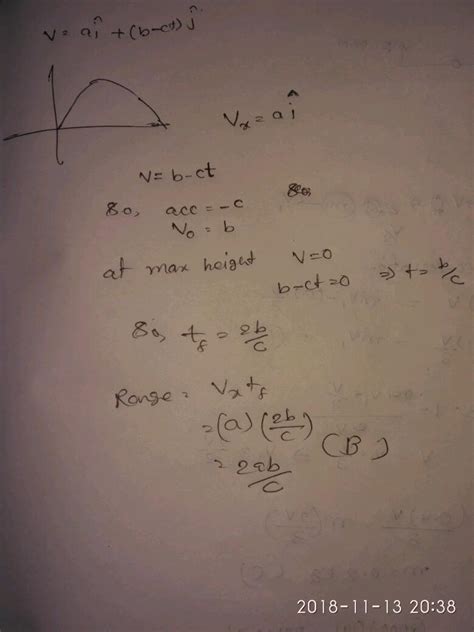 V = aî + (b-ct)ĵ
Vₓ = aî
V = b-ct
So, acc = -c
V₀ = b
at max height V=0
b-ct=0 ⇒ t = b/c
So, t_f = 2b/c
Range = Vₓ t_f
= (a) (2b/c)
= 2ab/c (B)
2018-11-13 20:38